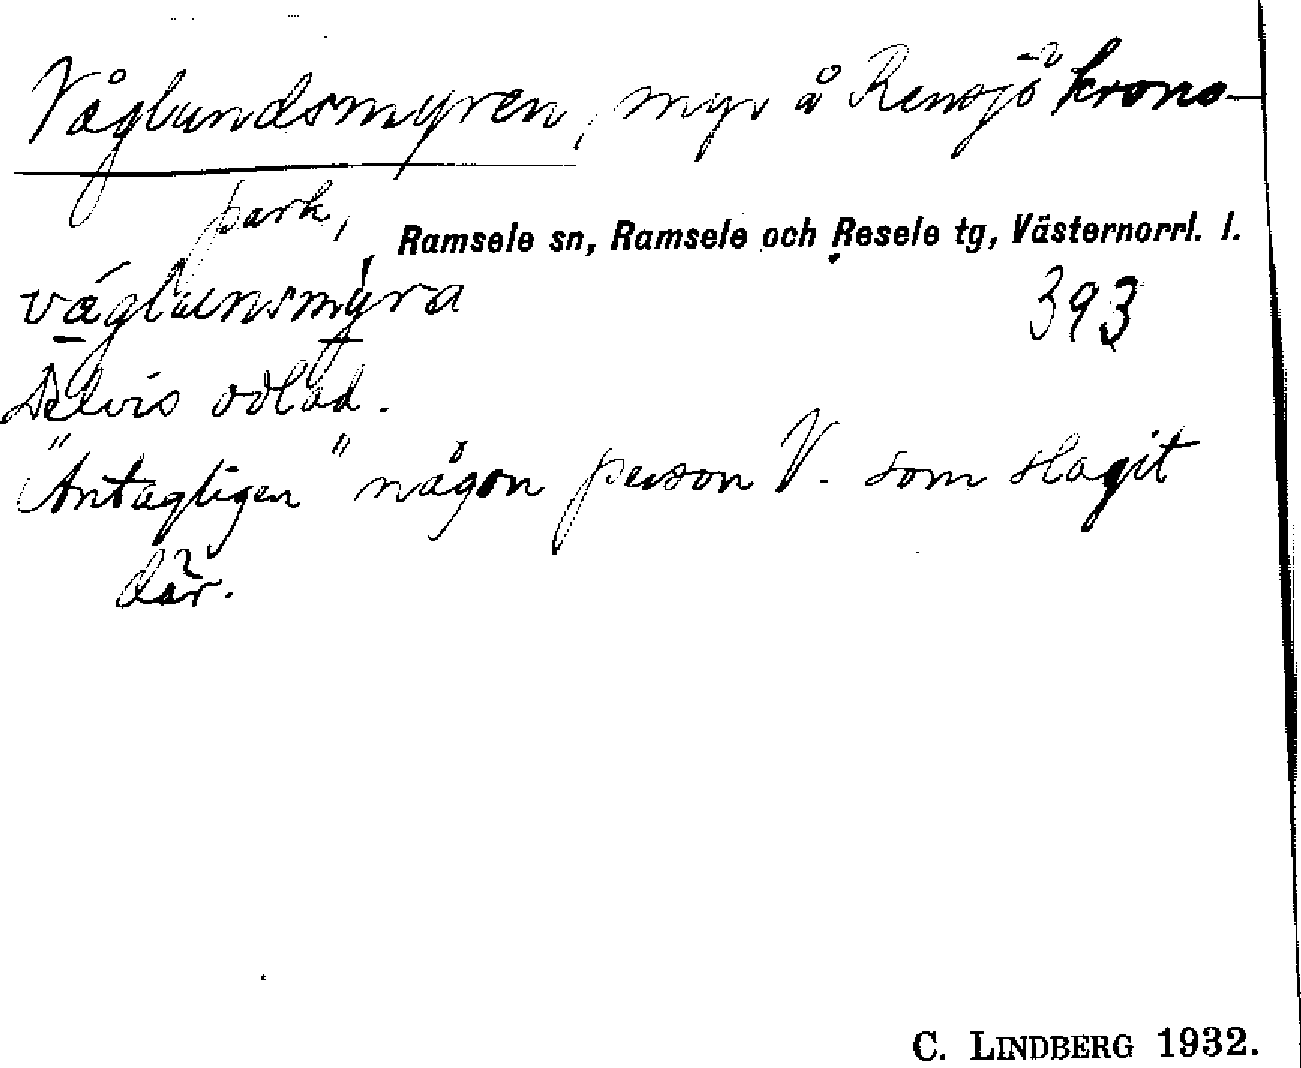 Våglundsmyren, myr å Rensjö krono-
park,
Ramsele sn, Ramsele och Resele tg, Västernorrl. l.
váglunsmỳra
393
Delvis odlad.
"Antagligen" någon person V. som slagit
där.
C. LINDBERG 1932.